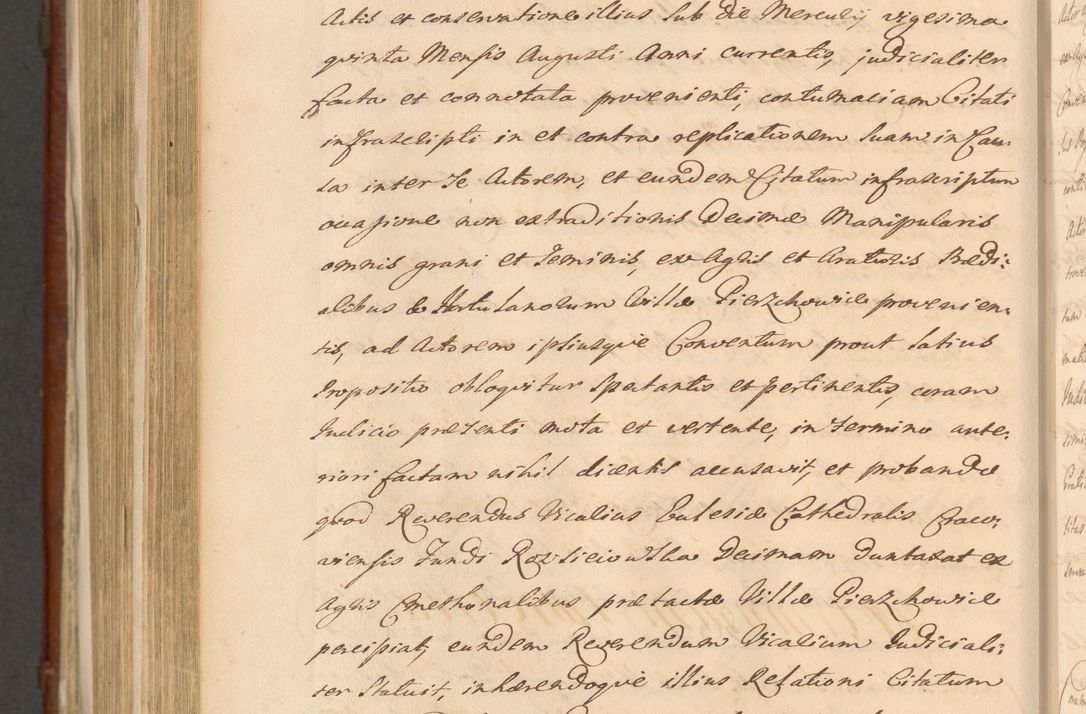 Actis et conservatione illius sub die Mercurij vigesima
qvinta Mensis Augusti Anni currentis, judicialiter
facta et connotata provenienti, contumaciam Citati
infrascripti in et contra replicationem suam in Cau-
sa inter se Actorem, et eundem Citatum infrascriptum
occasione non extraditionis Decimæ Manipularis
omnis grani et seminis, ex Agris et Aratoriis Prædi:
alibus & Hortulanorum Villæ Pierzchowice provenien:
tis, ad Actorem ipsiusqve Conventum prout latius
Propositio obloqvitur spectantis et pertinentis, coram
Judicio præsenti mota et vertente, in termino ante:
riori factam nihil dicentis accusavit, et probando
qvod Reverendus Vicalius Ecclesiæ Cathedralis Craco:
viensis Fundi Decimam duntaxat ex
Agris Cmethonalibus prætactæ Villæ Pierzchowice
percipiat, eundem Reverendum Vicalium Judiciali:
ter statuit, inhærendoqve illius Relationi Citatum